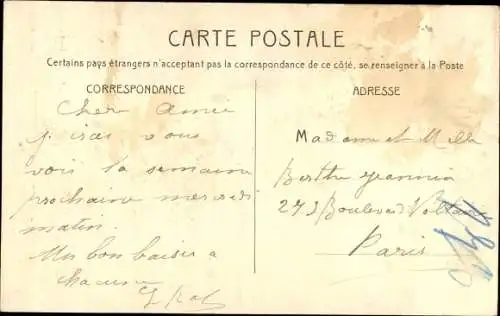 CARTE POSTALE
Certains pays étrangers n'acceptant pas la correspondance de ce côté, se renseigner à la Poste
CORRESPONDANCE
Cher Amie
j irai vous
voir la semaine
prochaine mercredi
matin.
Un bon baiser a
chacune
ADRESSE
Madame et Mlle
Berthe Jeannin
273 Boulevard Voltaire
Paris